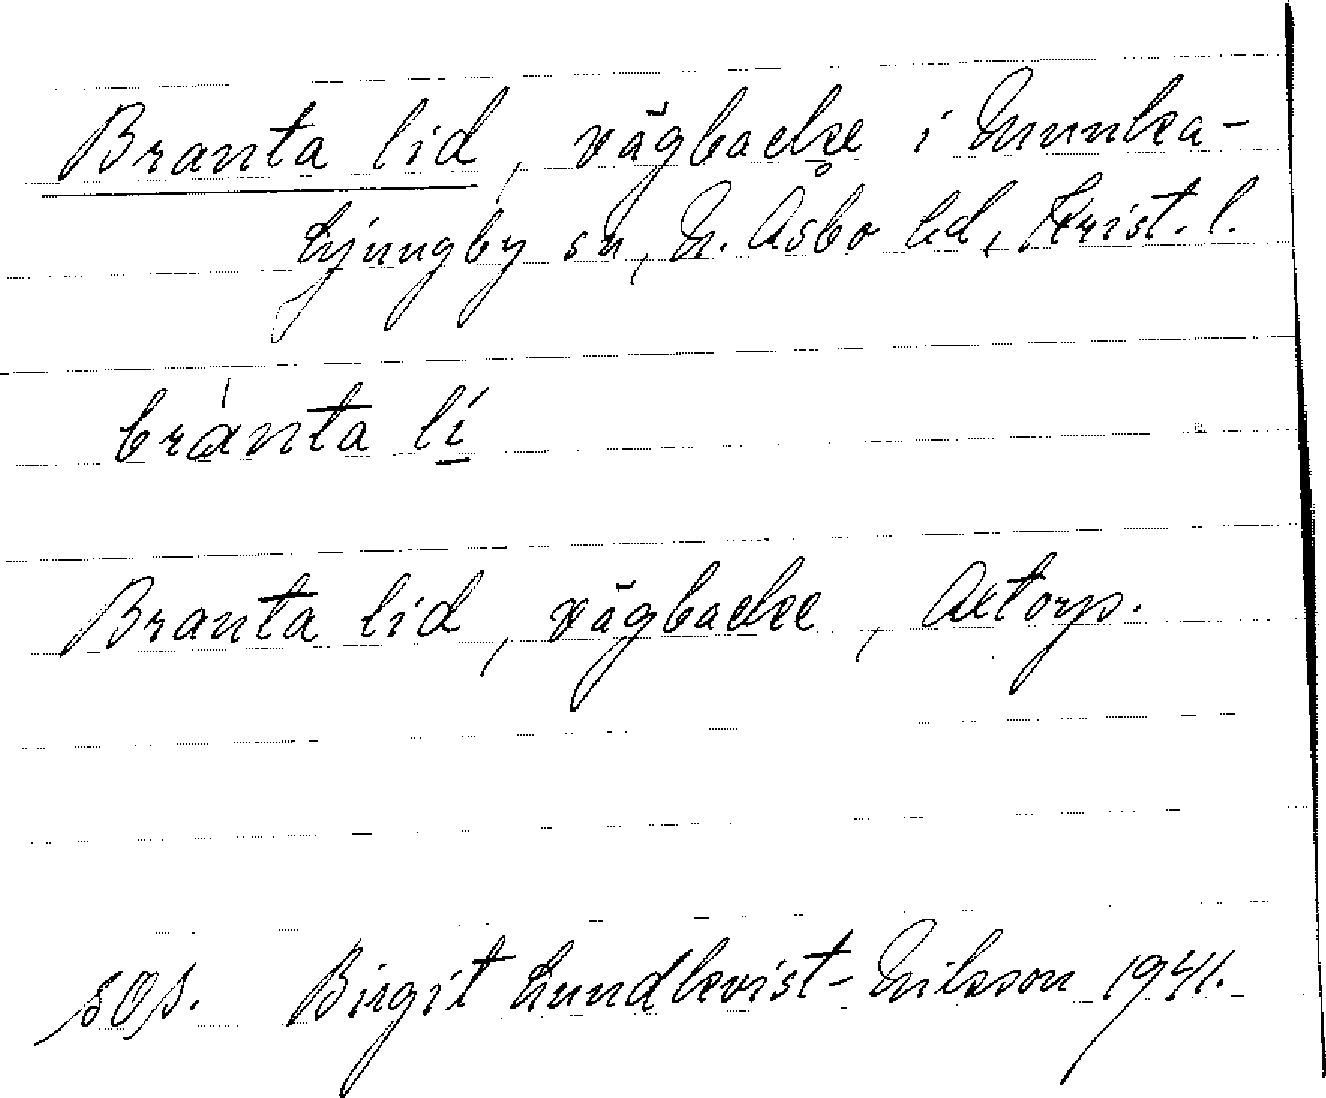 Branta lid, vägbacke i Munka-
Ljungby sn, N. Åsbo hd, Krist. l.
bránta lí
Branta lid, vägbacke, Axtorp.
Birgit Lundkvist-Nilsson 1941.